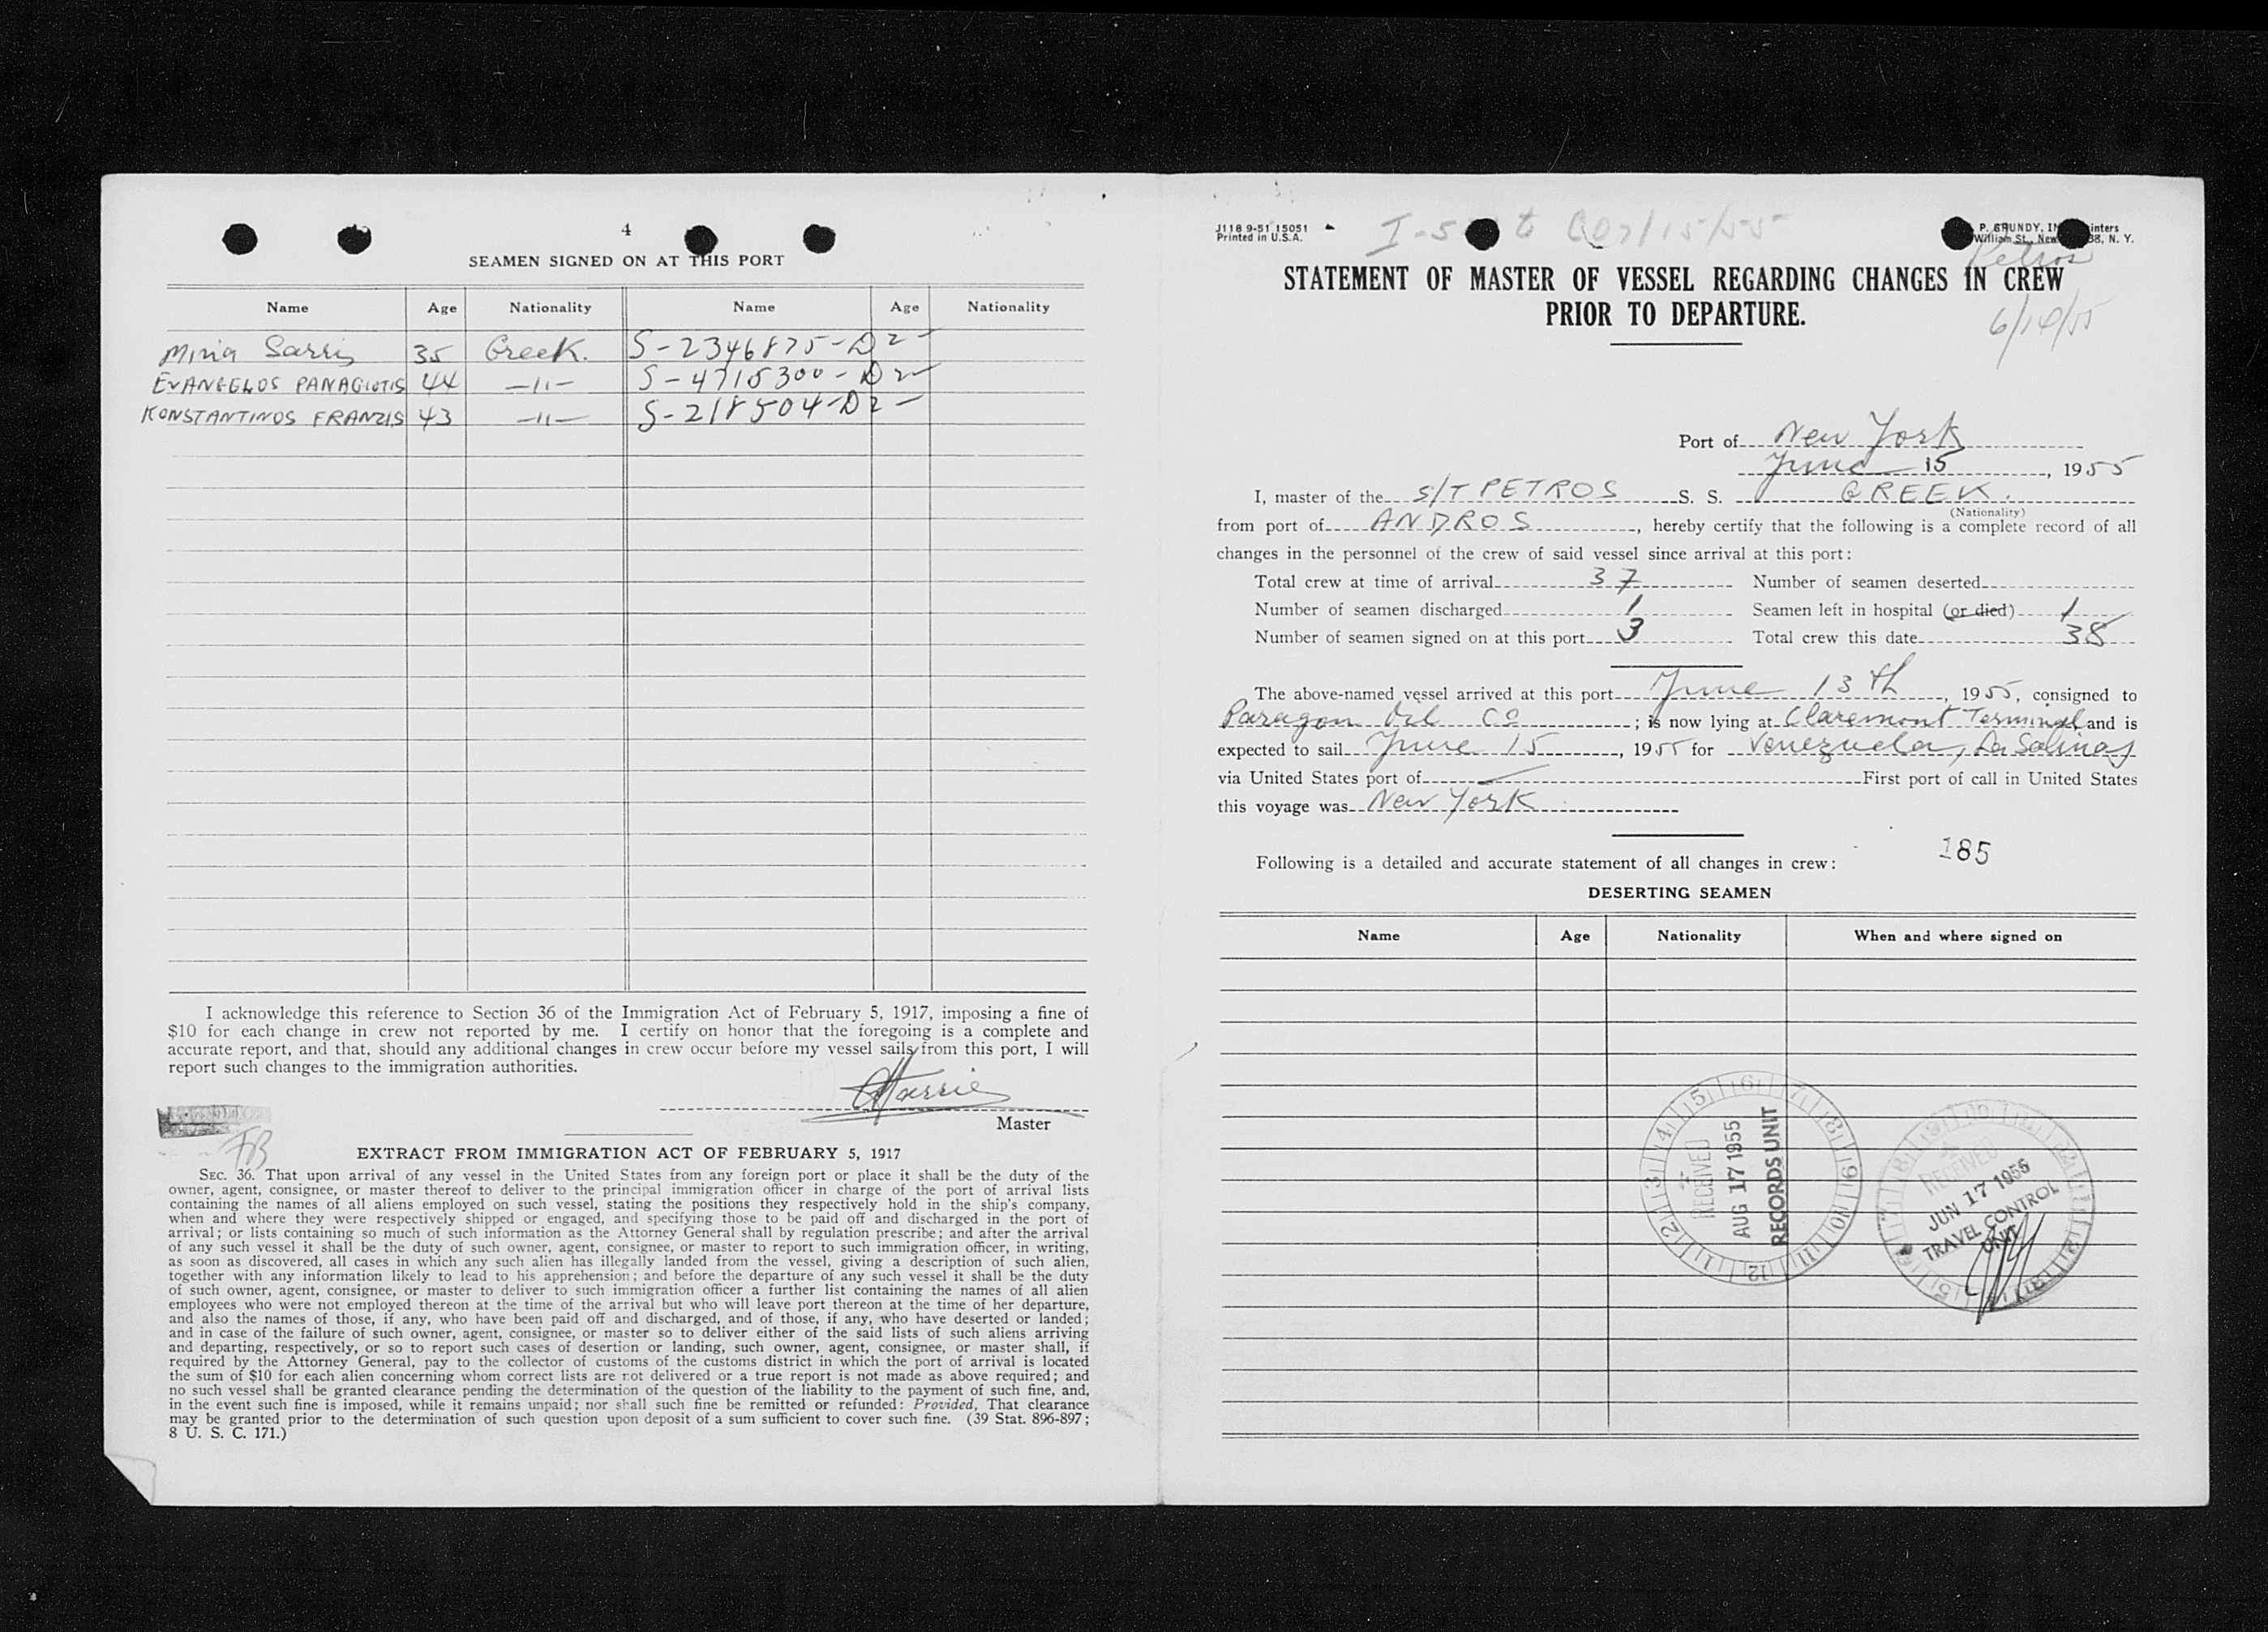 4
SEAMEN SIGNED ON AT THIS PORT
Name Age Nationality Name Age Nationality
Miria Sarris 35 Greek. S-2346875-D2-
EVANGELOS PANAGIOTIS 44 —11— S-4715300-D2-
KONSTANTINOS FRANZIS 43 —11— S-218504-D2-
I acknowledge this reference to Section 36 of the Immigration Act of February 5, 1917, imposing a fine of
$10 for each change in crew not reported by me. I certify on honor that the foregoing is a complete and
accurate report, and that, should any additional changes in crew occur before my vessel sails from this port, I will
report such changes to the immigration authorities.
Master
FB
EXTRACT FROM IMMIGRATION ACT OF FEBRUARY 5, 1917
SEC. 36. That upon arrival of any vessel in the United States from any foreign port or place it shall be the duty of the
owner, agent, consignee, or master thereof to deliver to the principal immigration officer in charge of the port of arrival lists
containing the names of all aliens employed on such vessel, stating the positions they respectively hold in the ship's company,
when and where they were respectively shipped or engaged, and specifying those to be paid off and discharged in the port of
arrival; or lists containing so much of such information as the Attorney General shall by regulation prescribe; and after the arrival
of any such vessel it shall be the duty of such owner, agent, consignee, or master to report to such immigration officer, in writing,
as soon as discovered, all cases in which any such alien has illegally landed from the vessel, giving a description of such alien,
together with any information likely to lead to his apprehension; and before the departure of any such vessel it shall be the duty
of such owner, agent, consignee, or master to deliver to such immigration officer a further list containing the names of all alien
employees who were not employed thereon at the time of the arrival but who will leave port thereon at the time of her departure,
and also the names of those, if any, who have been paid off and discharged, and of those, if any, who have deserted or landed;
and in case of the failure of such owner, agent, consignee, or master so to deliver either of the said lists of such aliens arriving
and departing, respectively, or so to report such cases of desertion or landing, such owner, agent, consignee, or master shall, if
required by the Attorney General, pay to the collector of customs of the customs district in which the port of arrival is located
the sum of $10 for each alien concerning whom correct lists are not delivered or a true report is not made as above required; and
no such vessel shall be granted clearance pending the determination of the question of the liability to the payment of such fine, and,
in the event such fine is imposed, while it remains unpaid; nor shall such fine be remitted or refunded: Provided, That clearance
may be granted prior to the determination of such question upon deposit of a sum sufficient to cover such fine. (39 Stat. 896-897;
8 U. S. C. 171.)
J118 9-51 15051
Printed in U.S.A.
P. GRUNDY, IN inters
William St., New 38, N. Y.
Petros
STATEMENT OF MASTER OF VESSEL REGARDING CHANGES IN CREW
PRIOR TO DEPARTURE.
6/14/55
Port of New York
June 15, 1955
I, master of the S/T PETROS S. S. GREEK.
(Nationality)
from port of ANDROS, hereby certify that the following is a complete record of all
changes in the personnel of the crew of said vessel since arrival at this port:
Total crew at time of arrival 37 Number of seamen deserted
Number of seamen discharged 1 Seamen left in hospital (or died) 1
Number of seamen signed on at this port 3 Total crew this date 38
The above-named vessel arrived at this port June 13th, 1955, consigned to
Paragon Oil Co; is now lying at Claremont Terminal and is
expected to sail June 15, 1955 for Venezuela, La Salinas
via United States port of — First port of call in United States
this voyage was New York
185
Following is a detailed and accurate statement of all changes in crew:
DESERTING SEAMEN
Name Age Nationality When and where signed on
RECEIVED
AUG 17 1955
RECORDS UNIT
RECEIVED
JUN 17 1955
TRAVEL CONTROL
UNIT